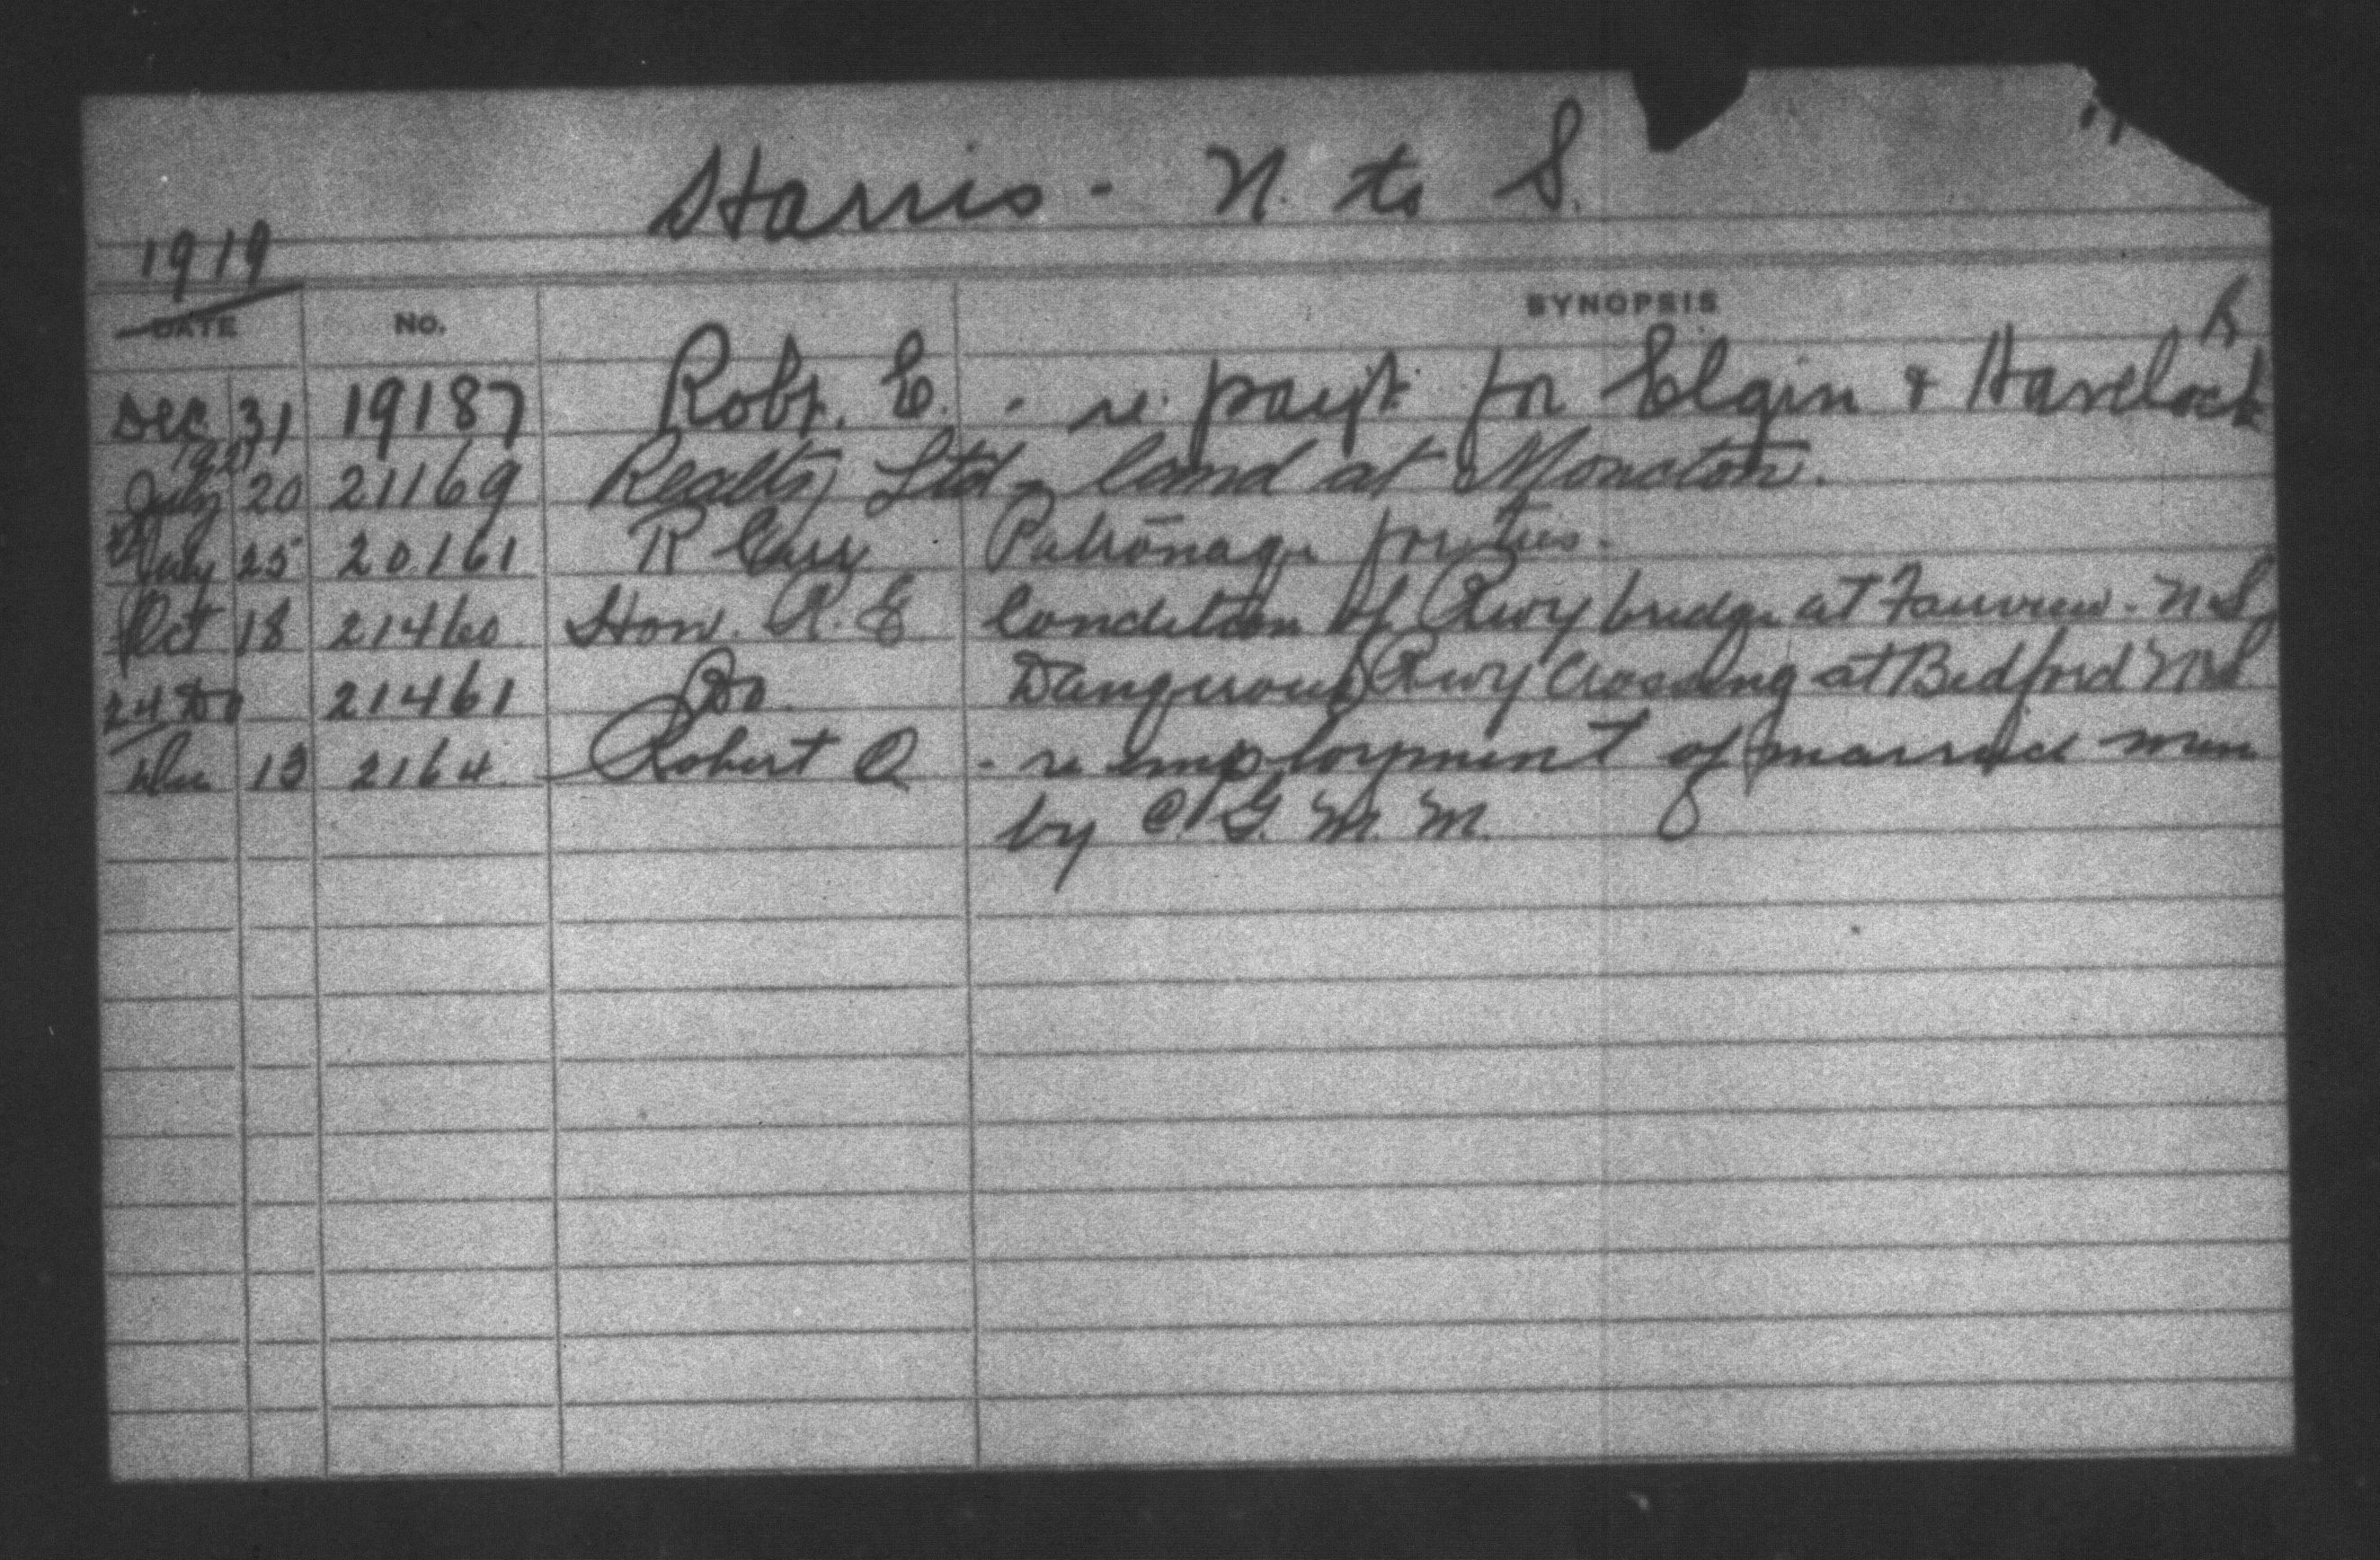 Harris - N. to S.
1919
DATE No. SYNOPSIS
R
Dec. 31 19187 Robt. E. - re. payt. for Elgin & Havelock
1921
July 20 21169 Realty Ltd - land at Moncton.
July 25 20161 R Carr Patronage for ties.
Oct 18 21460 Hon. R. E Condition of Rwy bridge at Fairview - N.S.
24 Do 21461 Do. Dangerous Rwy Crossing at Bedford N.S
Dec 13 2164 Robert O. - re employment of married men
by C. G. M. M.